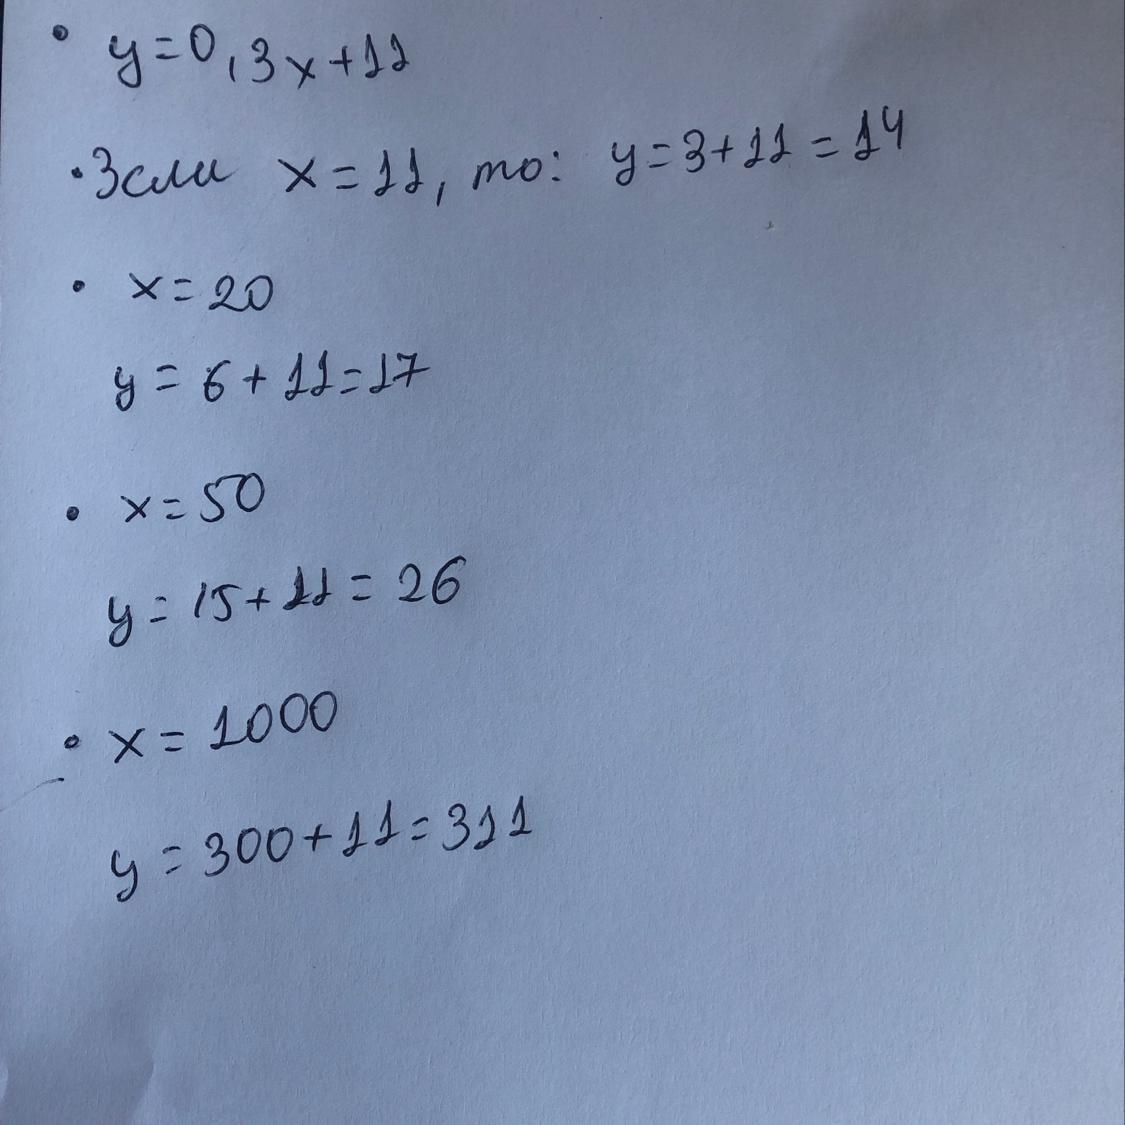 • y=0,3x+11
• Если x=11, то: y=3+11=14
• x=20
y=6+11=17
• x=50
y=15+11=26
• x=1000
y=300+11=311